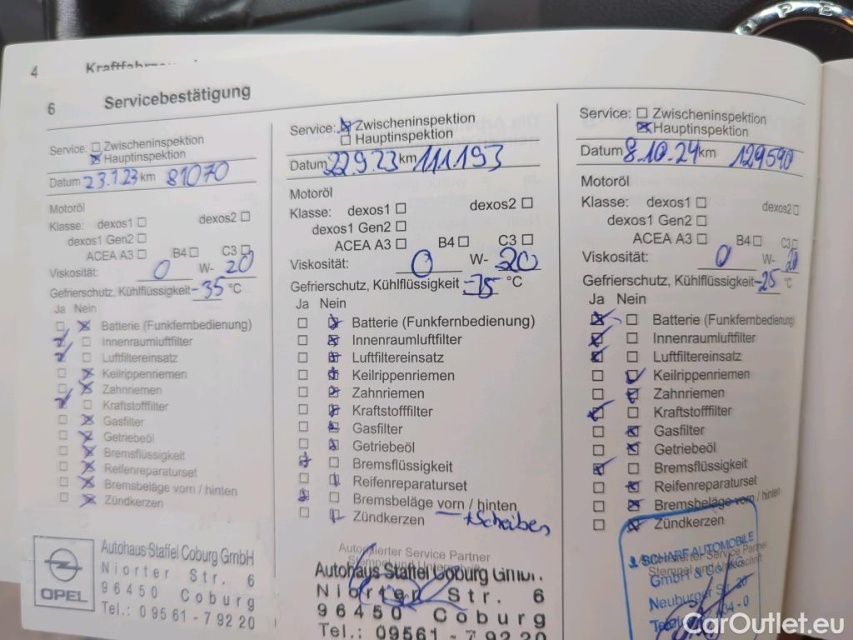 4
6 Servicebestätigung
Service: Zwischeninspektion
Hauptinspektion
Datum 23.1.23 km 81070
Motoröl
Klasse: dexos1 dexos2
dexos1 Gen2
ACEA A3 B4 C3
Viskosität: 0 W- 20
Gefrierschutz, Kühlflüssigkeit -35 °C
Ja Nein
Batterie (Funkfernbedienung)
Innenraumluftfilter
Luftfiltereinsatz
Keilrippenriemen
Zahnriemen
Kraftstofffilter
Gasfilter
Getriebeöl
Bremsflüssigkeit
Reifenreparaturset
Bremsbeläge vorn / hinten
Zündkerzen
Autohaus Staffel Coburg GmbH
Niorter Str. 6
96450 Coburg
Tel.: 09561-79220
OPEL
Service: Zwischeninspektion
Hauptinspektion
Datum 22.9.23 km 111.193
Motoröl
Klasse: dexos1 dexos2
dexos1 Gen2
ACEA A3 B4 C3
Viskosität: 0 W- 20
Gefrierschutz, Kühlflüssigkeit °C
Ja Nein
Batterie (Funkfernbedienung)
Innenraumluftfilter
Luftfiltereinsatz
Keilrippenriemen
Zahnriemen
Kraftstofffilter
Gasfilter
Getriebeöl
Bremsflüssigkeit
Reifenreparaturset
Bremsbeläge vorn / hinten
Zündkerzen + Scheiben
Autorisierter Service Partner
Autohaus Staffel Coburg GmbH.
Niorter Str. 6
96450 Coburg
Tel.: 09561-79220
Service: Zwischeninspektion
Hauptinspektion
Datum 8.10.24 km 129590
Motoröl
Klasse: dexos1 dexos2
dexos1 Gen2
ACEA A3 B4 C3
Viskosität: 0 W-
Gefrierschutz, Kühlflüssigkeit -25 °C
Ja Nein
Batterie (Funkfernbedienung
Innenraumluftfilter
Luftfiltereinsatz
Keilrippenriemen
Zahnriemen
Kraftstofffilter
Gasfilter
Getriebeöl
Bremsflüssigkeit
Reifenreparaturset
Bremsbeläge vorn / hinten
Zündkerzen
SCHARF AUTOMOBILE
GmbH & Co. KG
Neuburger Str. 20
CarOutlet.eu